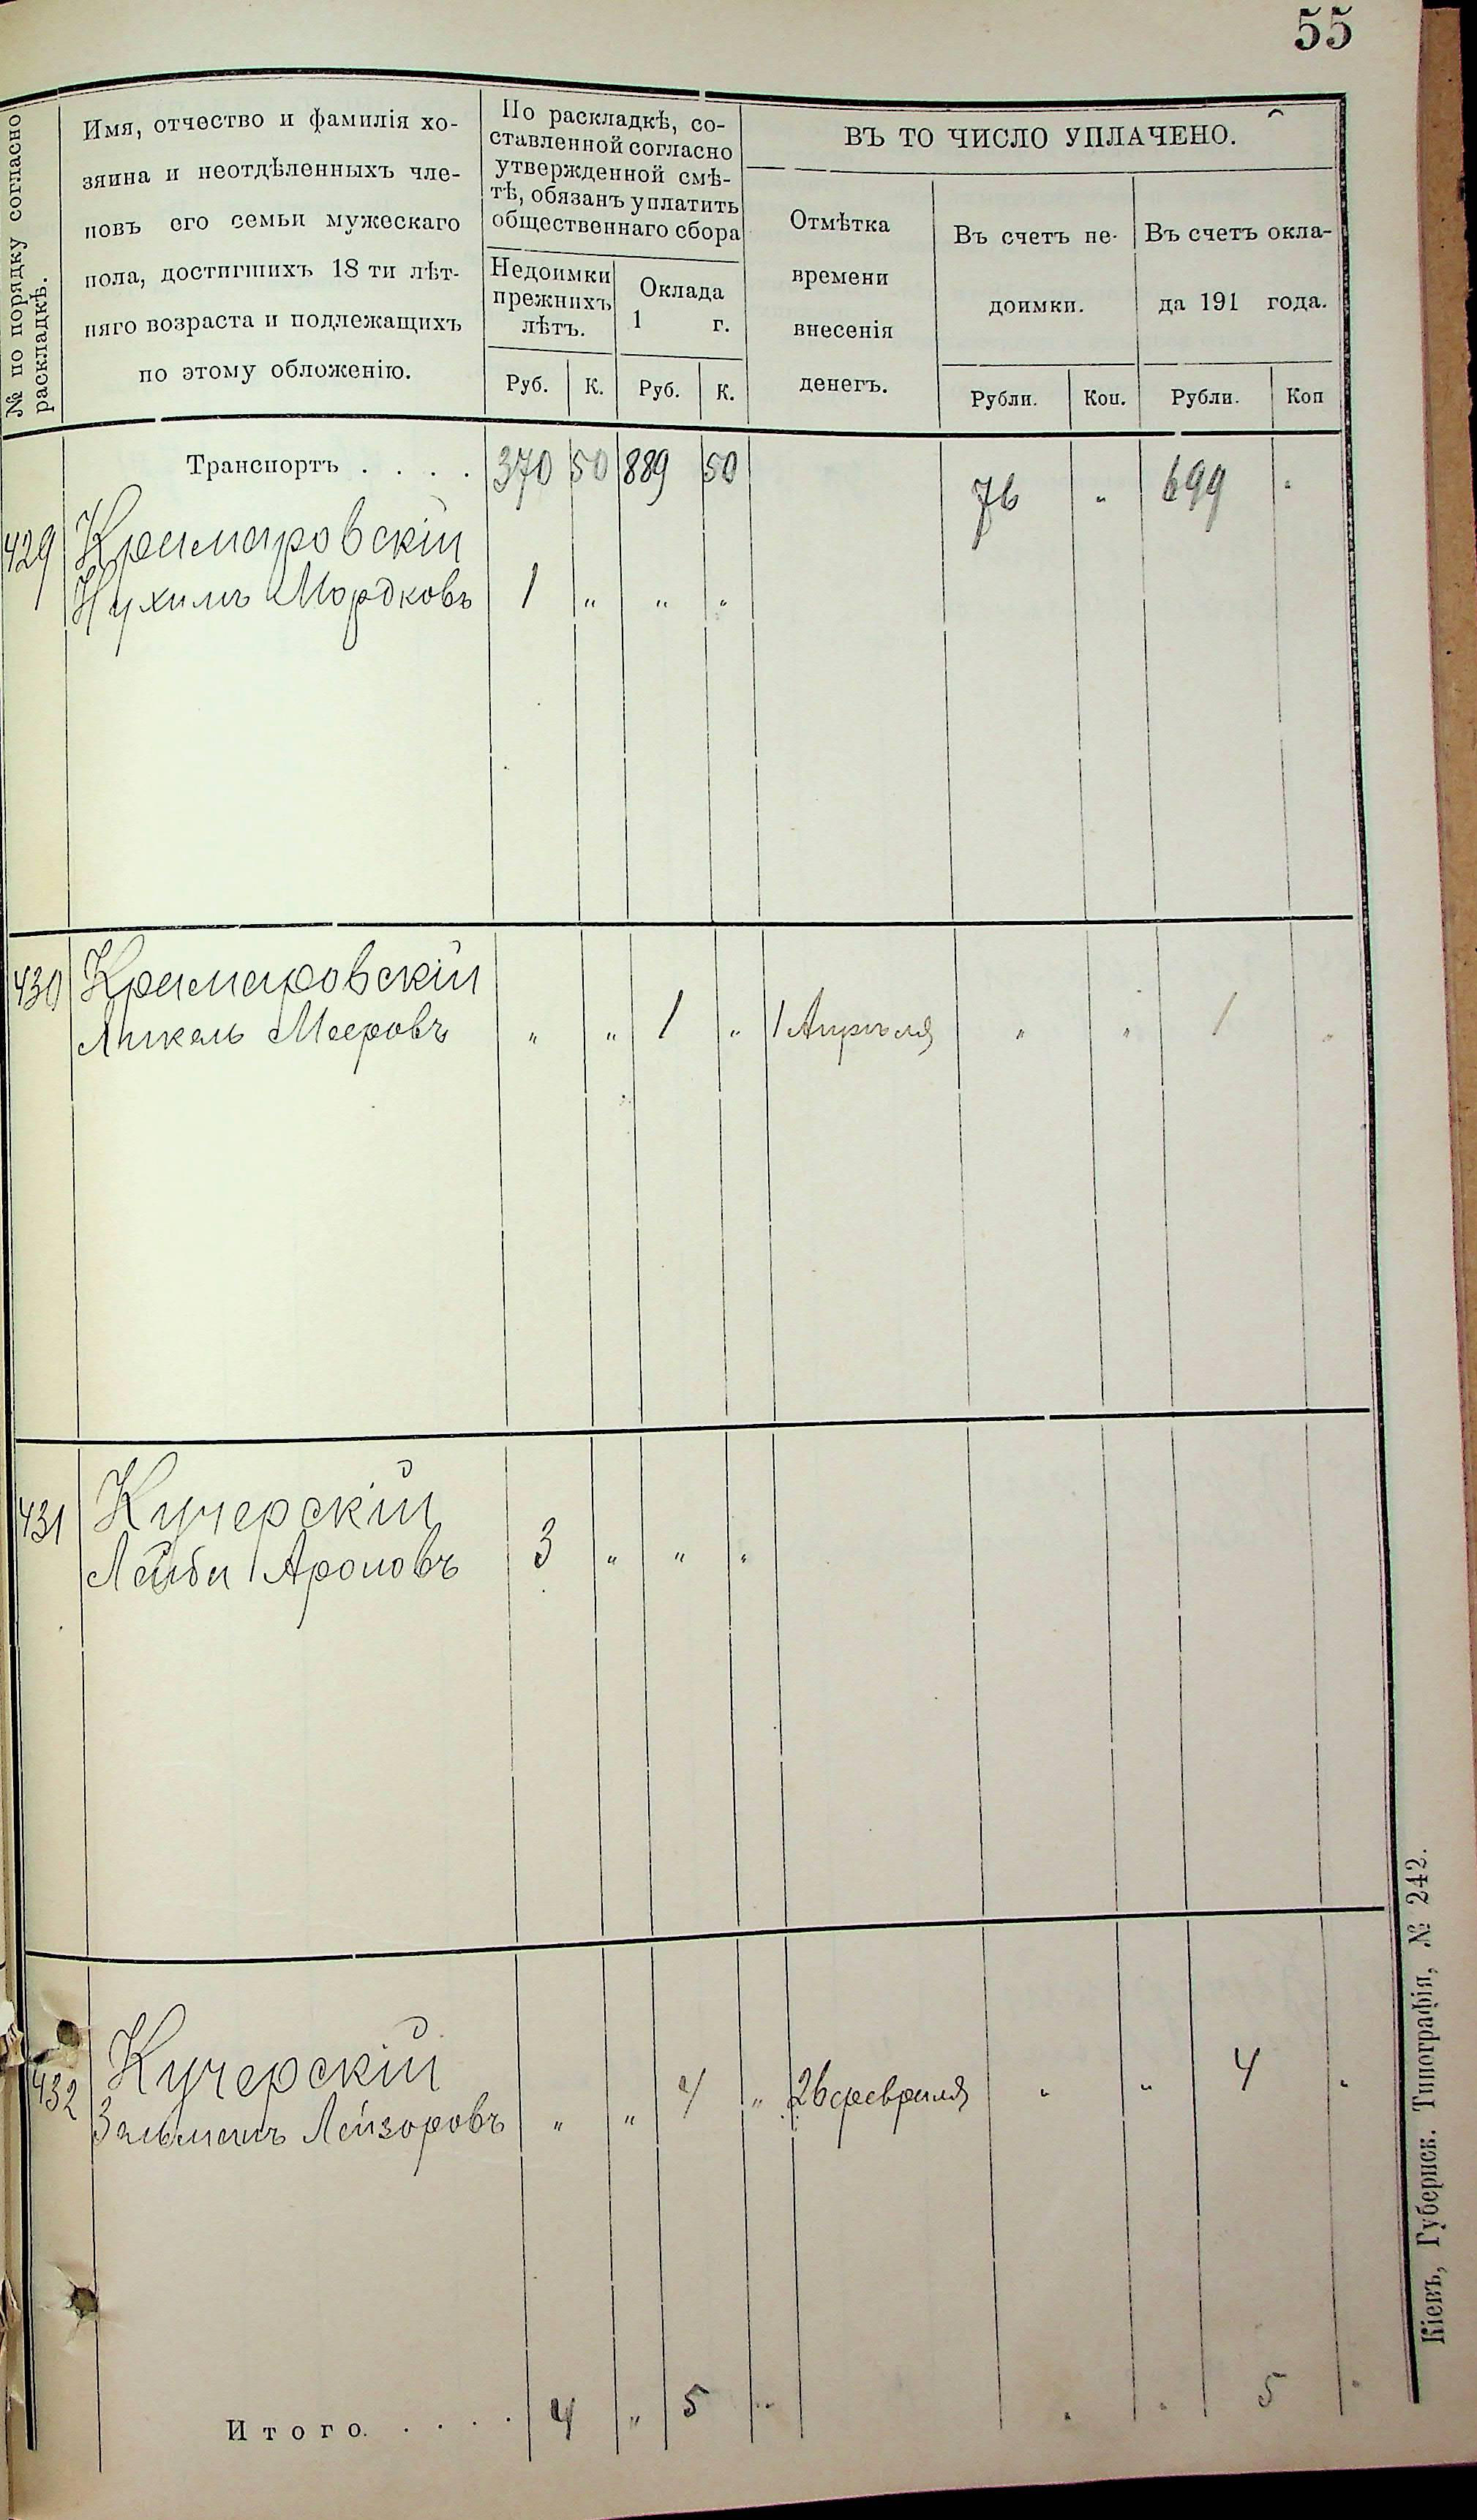 55
№ по порядку согласно
раскладкѣ.
Имя, отчество и фамилія хо-
зяина и неотдѣленныхъ чле-
новъ его семьи мужескаго
пола, достигшихъ 18 ти лѣт-
няго возраста и подлежащихъ
по этому обложенію.
По раскладкѣ, со-
ставленной согласно
утвержденной смѣ-
тѣ, обязанъ уплатить
общественнаго сбора
Недоимки
прежнихъ
лѣтъ.
Оклада
1 г.
Руб. К. Руб. К.
ВЪ ТО ЧИСЛО УПЛАЧЕНО.
Отмѣтка
времени
внесенія
денегъ.
Въ счетъ не-
доимки.
Въ счетъ окла-
да 191 года.
Рубли. Коп. Рубли. Коп
Транспортъ . . . . 370 50 889 50 76 „ 699 „
429 Крамаровскій
Нухимъ Мордковъ 1 „ „ „
430 Крамаровскій
Мееровъ „ „ 1 „ 1 Апрѣля „ „ 1 „
431 Кучерскій
Лейба Ароновъ 3 „ „ „
432 Кучерскій
Зельманъ Лейзоровъ „ „ 4 „ 26 февраля „ „ 4 „
Итого. . . . . 4 „ 5 „ „ „ 5 „
Кіевъ, Губернск. Типографія, № 242.